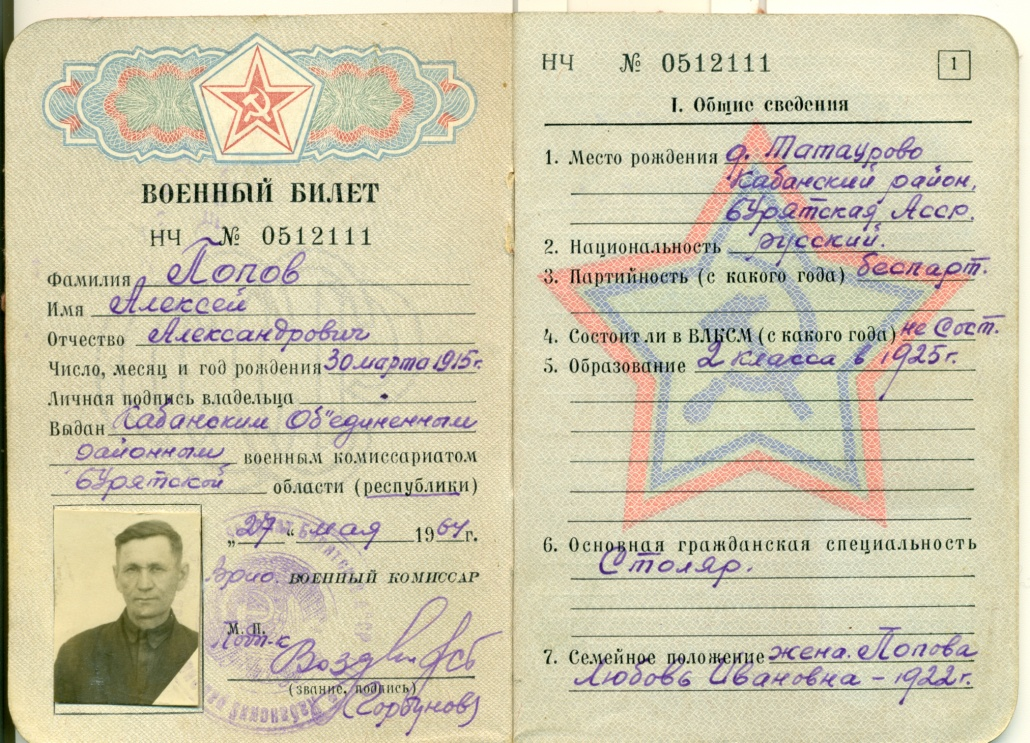 ВОЕННЫЙ БИЛЕТ
НЧ № 0512111
Фамилия Попов
Имя Алексей
Отчество Александрович
Число, месяц и год рождения 30 марта 1915г.
Личная подпись владельца
Выдан Кабанским Об"единенным
районным военным комиссариатом
бурятской области (республики)
„27“ мая 1964г.
Врио. ВОЕННЫЙ КОМИССАР
М. П.
Подп-к
(звание, подпись)
(Горбунов)
НЧ № 0512111
1
I. Общие сведения
1. Место рождения д. Татаурово
Кабанский район,
бурятская Асср.
2. Национальность русский.
3. Партийность (с какого года) беспарт.
4. Состоит ли в ВЛКСМ (с какого года) не сост.
5. Образование 2 класса в 1925г.
6. Основная гражданская специальность
Столяр.
7. Семейное положение жена. Попова
Любовь Ивановна - 1922г.